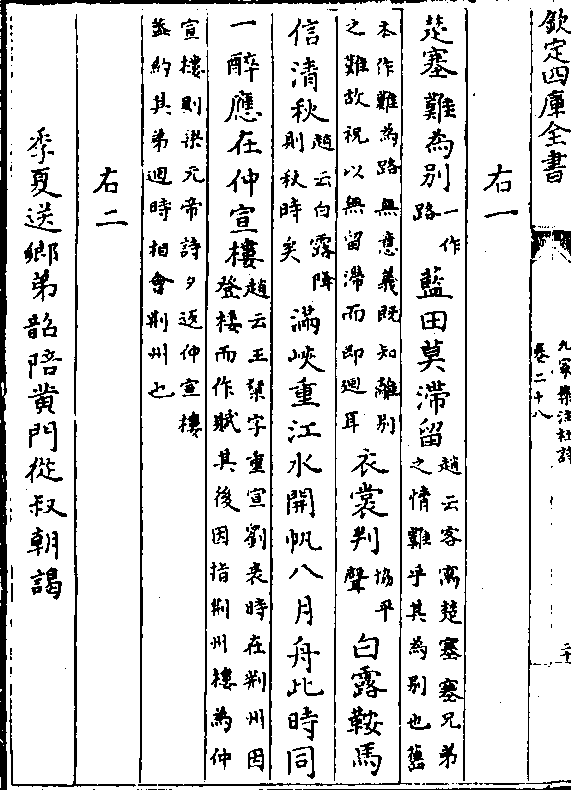 欽定四庫全書
九家集注杜詩
卷二十八
右一
楚塞難為別一作路藍田莫滯留趙云客寓楚塞塞兄弟之情難乎其為別也舊
本作難為路無意義既知離別之難故祝以無留滯而即迴耳衣裳判協平聲白露鞍馬
信清秋趙云白露降則秋時矣滿峽重江水開帆八月舟此時同
一醉應在仲宣樓趙云王粲字重宣劉表時在荆州因登樓而作賦其後因指荆州樓為仲
宣樓則梁元帝詩夕返仲宣樓並約其弟迴時相會荆州也
右二
季夏送鄉弟韶陪黄門從叔朝謁